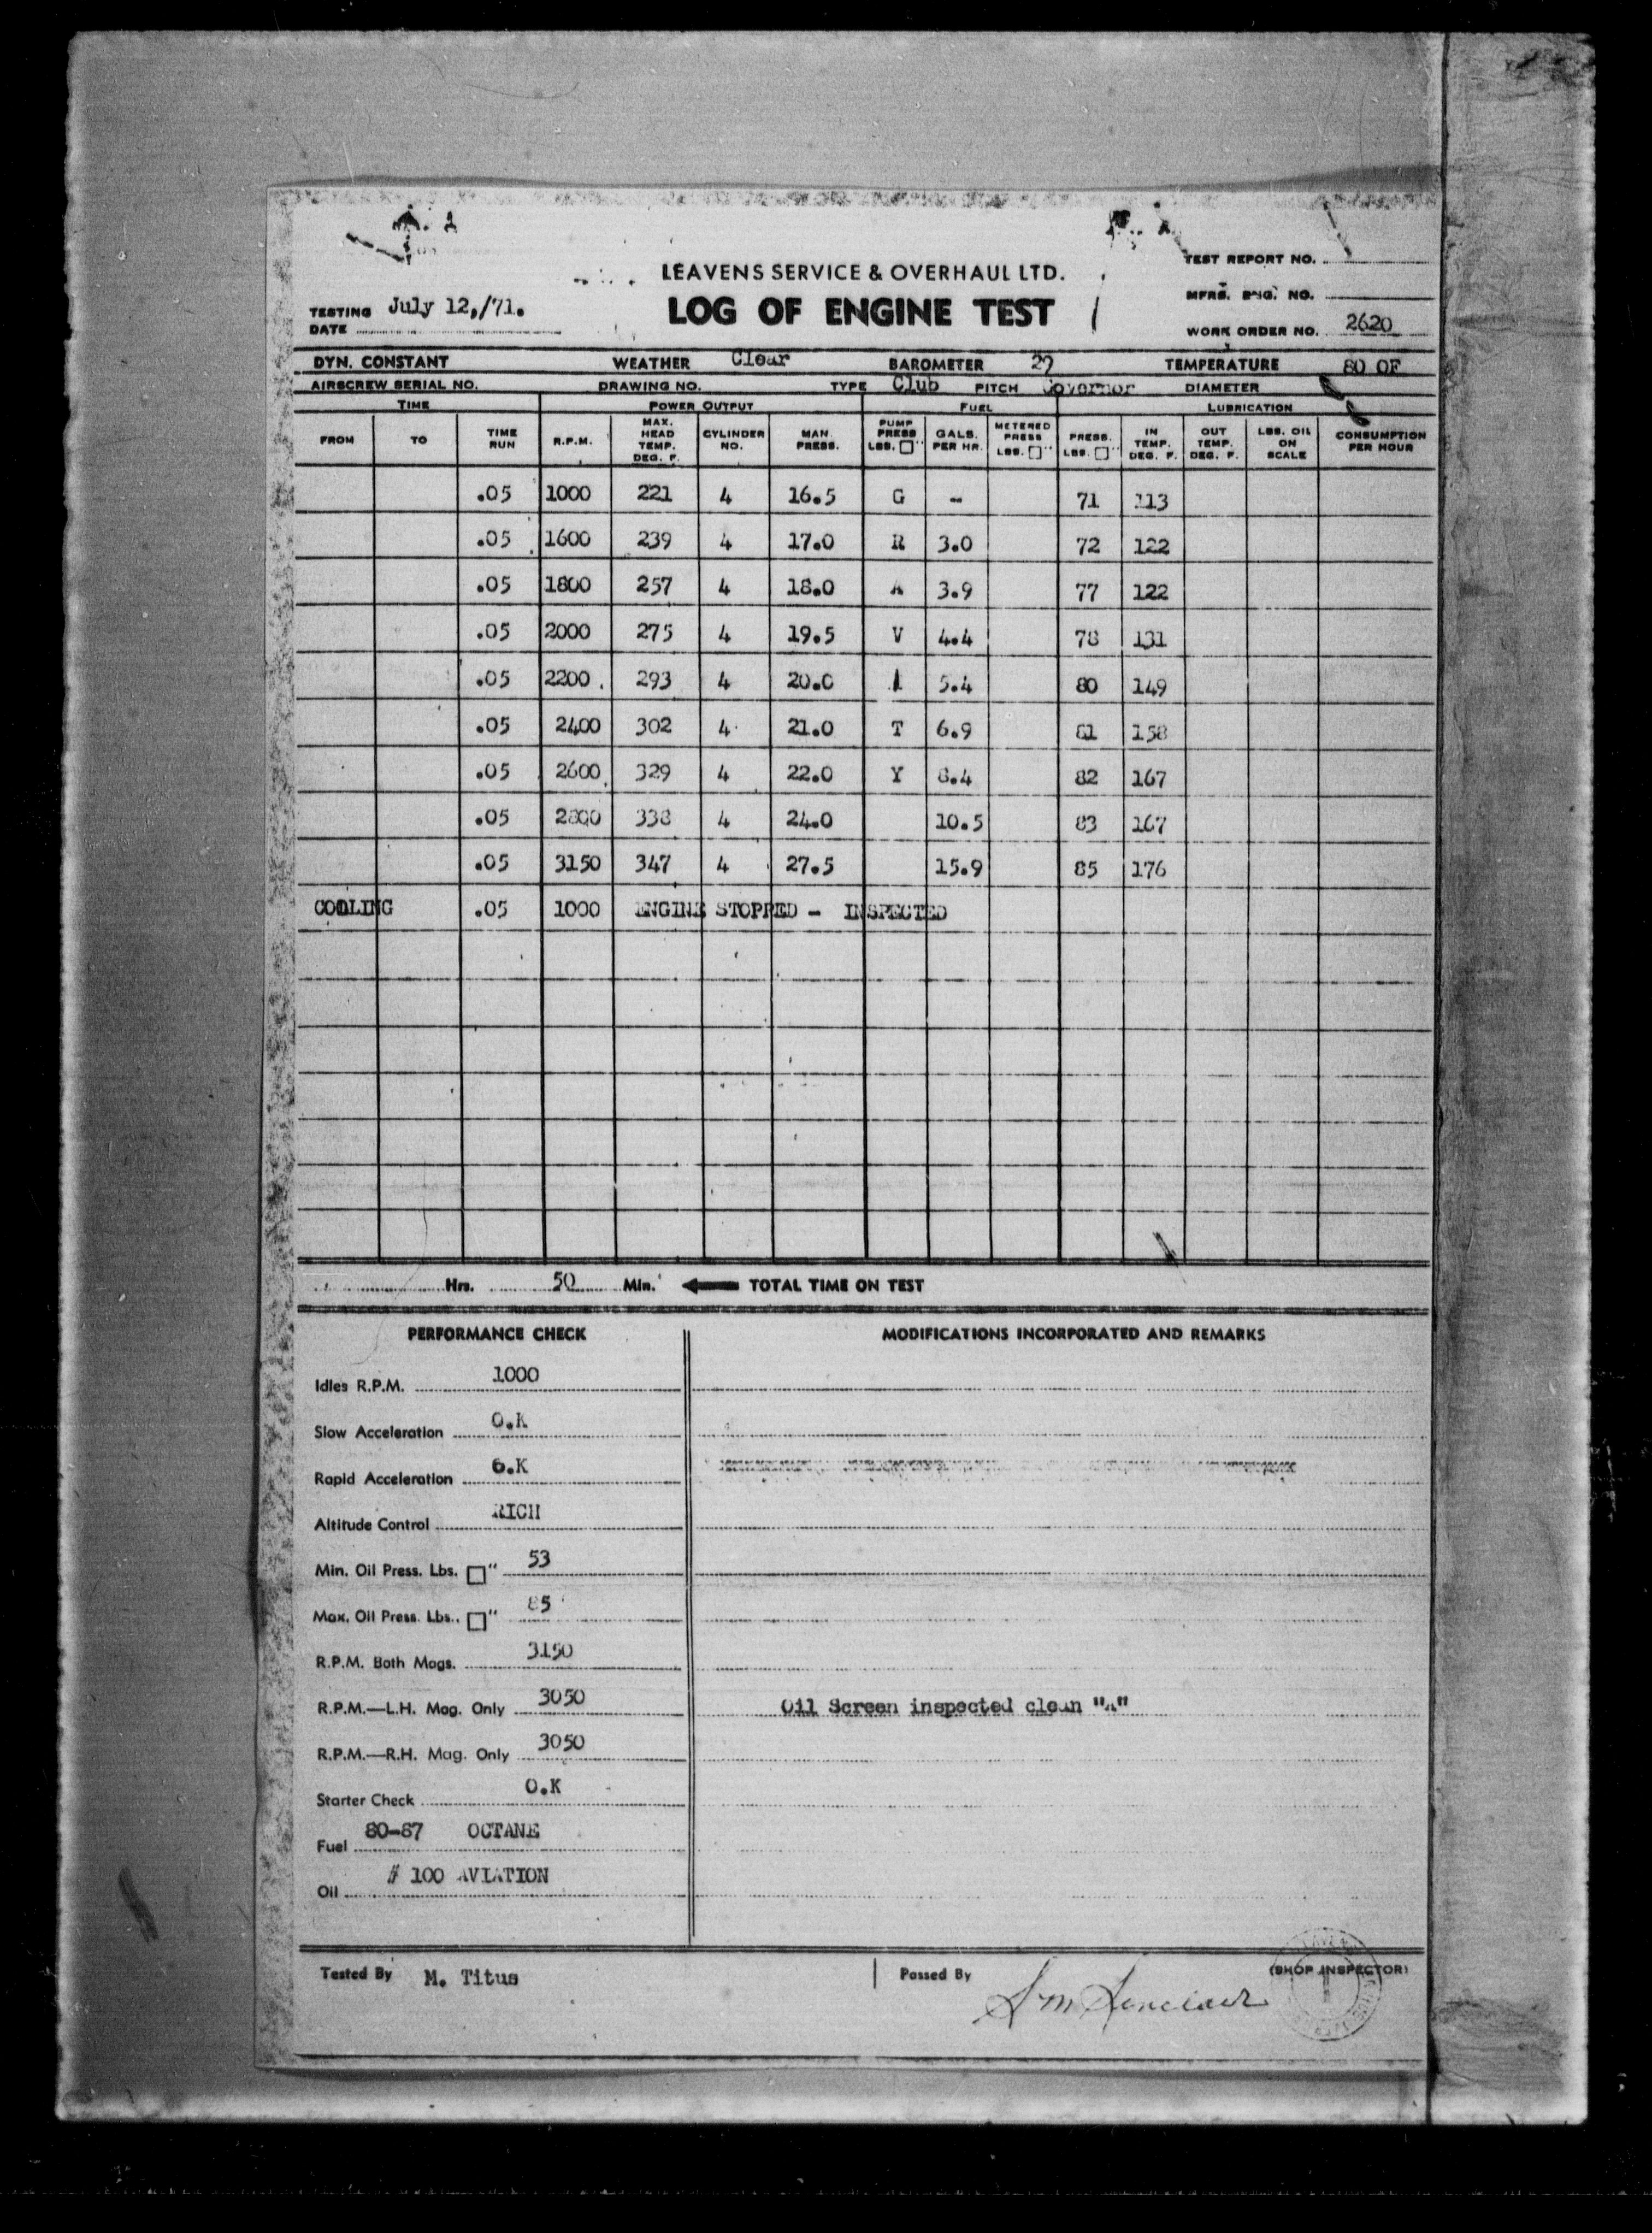 TEST REPORT NO.
LEAVENS SERVICE & OVERHAUL LTD.
MFRS. ENG. NO.
TESTING DATE July 12,/71.
LOG OF ENGINE TEST
WORK ORDER NO. 2620
DYN. CONSTANT WEATHER Clear BAROMETER 29 TEMPERATURE 80 OF
AIRSCREW SERIAL NO. DRAWING NO. TYPE Club PITCH Governor DIAMETER
TIME POWER OUTPUT FUEL LUBRICATION
FROM TO TIME RUN R.P.M. MAX. HEAD TEMP. DEG. F. CYLINDER NO. MAN. PRESS. PUMP PRESS LBS. □" GALS. PER HR. METERED PRESS LBS. □" PRESS. LBS. □" IN TEMP. DEG. F. OUT TEMP. DEG. F. LBS. OIL ON SCALE CONSUMPTION PER HOUR
.05 1000 221 4 16.5 G - 71 113
.05 1600 239 4 17.0 R 3.0 72 122
.05 1800 257 4 18.0 A 3.9 77 122
.05 2000 275 4 19.5 V 4.4 78 131
.05 2200 293 4 20.0 I 5.4 80 149
.05 2400 302 4 21.0 T 6.9 81 158
.05 2600 329 4 22.0 Y 8.4 82 167
.05 2800 338 4 24.0 10.5 83 167
.05 3150 347 4 27.5 15.9 85 176
COOLING .05 1000 ENGINE STOPPED - INSPECTED
Hrs. 50 Min. TOTAL TIME ON TEST
PERFORMANCE CHECK MODIFICATIONS INCORPORATED AND REMARKS
Idles R.P.M. 1000
Slow Acceleration O.K
Rapid Acceleration O.K
Altitude Control RICH
Min. Oil Press. Lbs. □" 53
Max. Oil Press. Lbs.. □" 85
R.P.M. Both Mags. 3150
R.P.M.—L.H. Mag. Only 3050 Oil Screen inspected clean "A"
R.P.M.—R.H. Mag. Only 3050
Starter Check O.K
Fuel 80-87 OCTANE
Oil # 100 AVIATION
Tested By M. Titus Passed By (SHOP INSPECTOR)
Sinclair